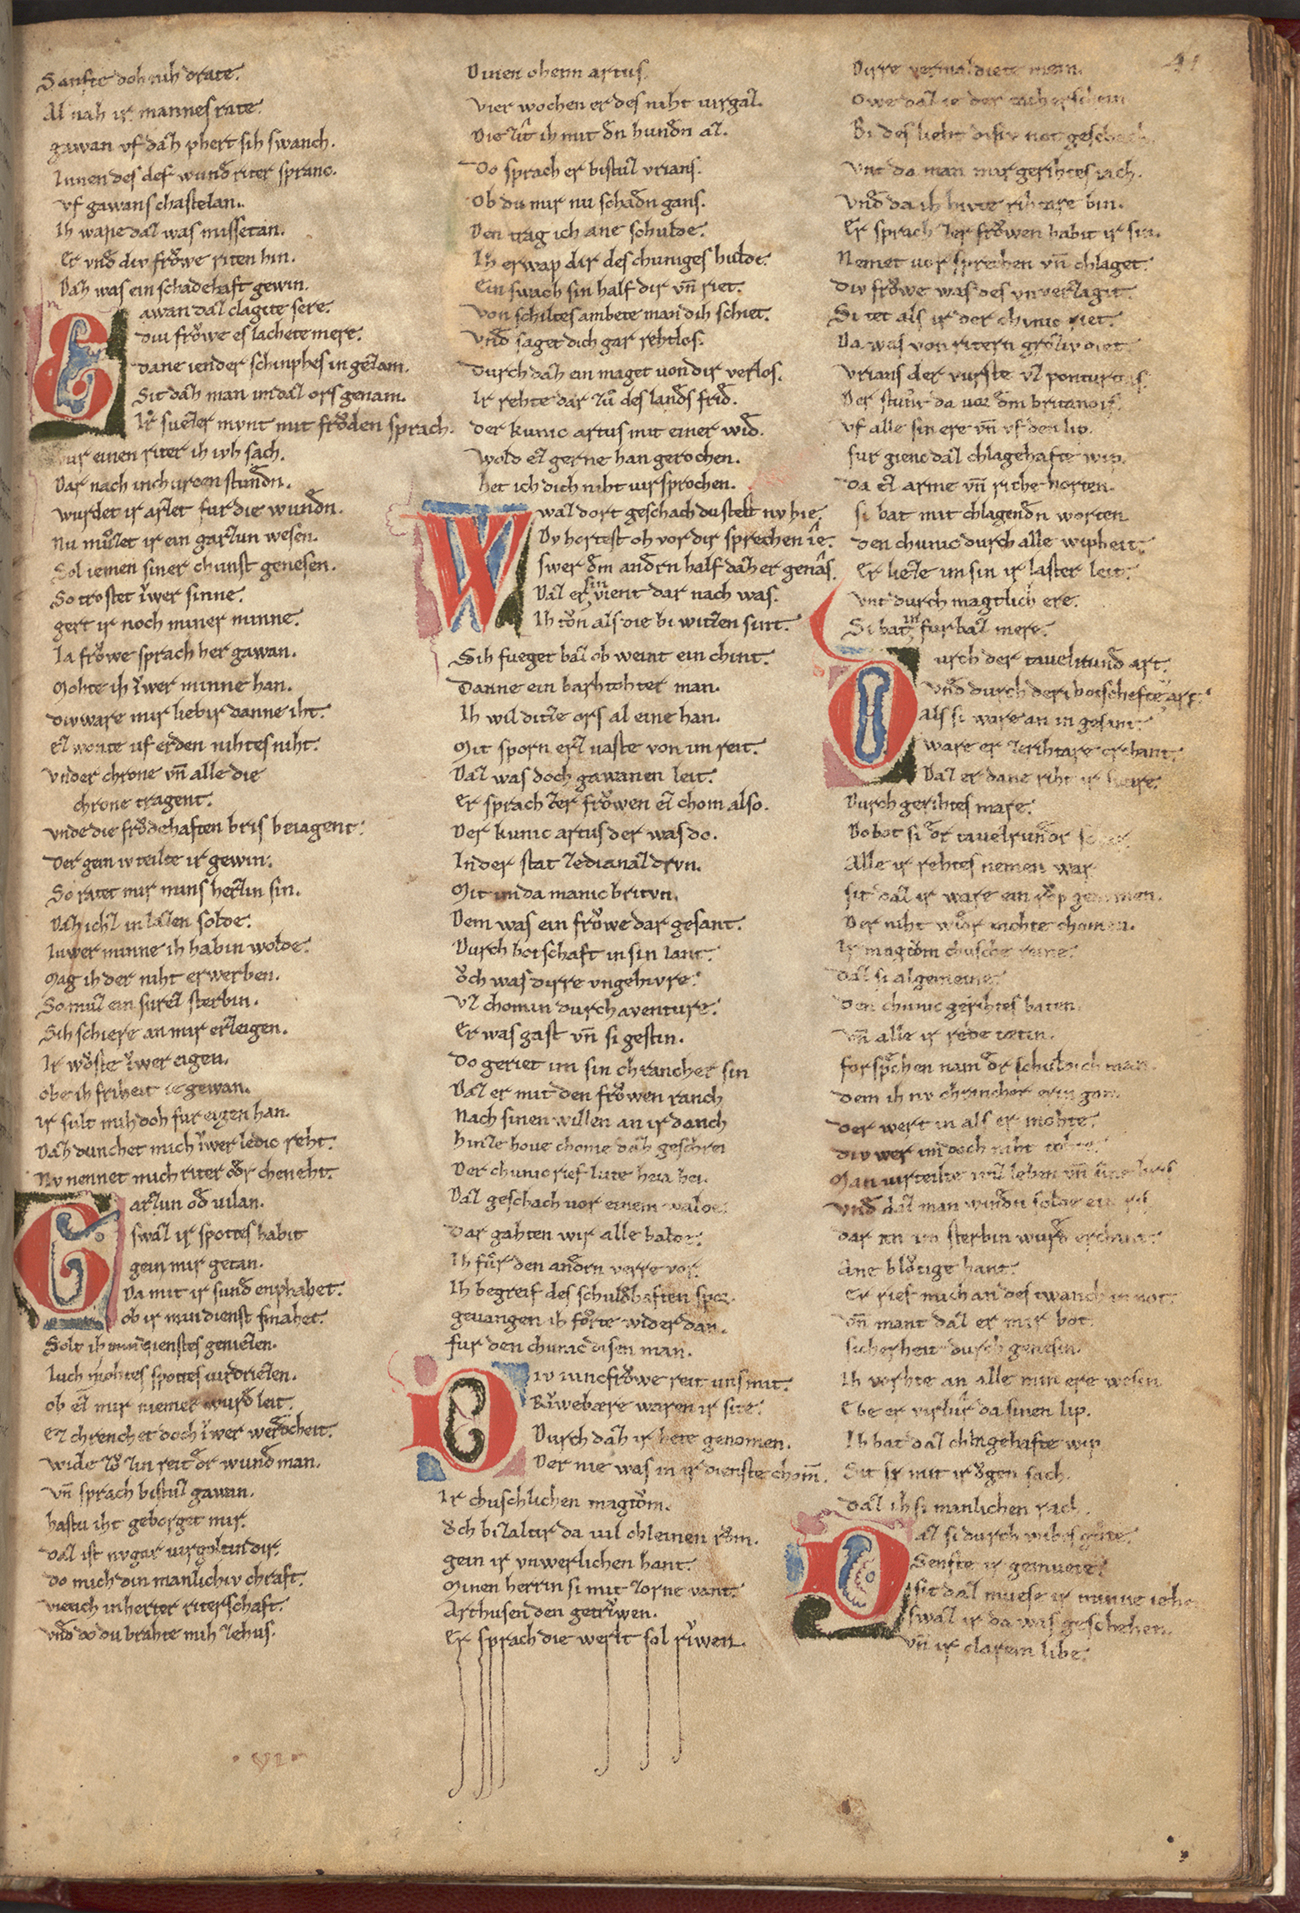 Sanfte doh nih drate.
Al nah ir mannes rate.
gawan vf daz phert sih swanch.
Innen des der wund͛ riter spranc.
vf gawans chastelan.
Ih wæne daz was missetan.
Er vnd͛ div frowe riten hin.
Daz was ein schadehaft gewin.
Gawan daz clagite sere.
diu frowe es lachete mere.
dane iender schinphes in gezam.
Sit daz man im daz ors genam.
Ir suezer mvnt mit froden sprach.
Fur einen riter ih iwh sach.
Dar nach in churcen stundn.
wurdet ir arzet fur die wundn.
Nu muozet ir ein garzun wesen.
Sol iemen siner chunst genesen.
So trostet iwer sinne.
gert ir noch miner minne.
Ia frowe sprach her gawan.
Mohte ih iwer minne han.
div ware mir liebir danne iht.
ez wonte uf erden nihtes niht.
vnder chrone vn̄ alle die
chrone tragent.
vnde die frodehaften bris beiagent.
Der gein iv teilte ir gewin.
So ratet mir mins herzin sin.
Daz ichz in lazen solde.
Iuwer minne ih habin wolde.
Mag ih der niht erwerben.
So muz ein surez sterbin.
Sih schiere an mir erzeigen.
Ir wöste iwer eigen.
obe ih friheit ie gewan.
ir sult mih doh fur eigen han.
Daz dunchet mich iwer ledic reht.
Nv nennet mich riter od͛ chneht.
Garzun od͛ vilan.
swaz ir spottes habit
gein mir getan.
Da mit ir sund͛ enphahet.
ob ir min dienst smahet.
Solt ih mins dienstes geniezen.
Iuch mohtes spottes virdriezen.
ob ez mir niemer wurd͛ leit.
ez chrenchet doch iwer werdicheit.
wide zuo zin reit d͛ wund͛ man.
vn̄ sprach bistuz gawan.
hastu iht geborget mir.
daz ist nv gar virgoltin dir.
do mich din manlichiv chraft.
viench in herter riterschaft.
vnd͛ do du brahte mih zehus.
Dinen ohenn artus.
vier wochen er des niht virgaz.
Die zit ih mit dn̄ hundn̄ az.
Do sprach er bistuz vrians.
Ob du mir nu schadn gans.
Den trag ich ane schulde.
Ih erwap dir des chuniges hulde.
Ein swach sin half dir vn̄ riet.
von schiltes ambete man dih schiet.
vnd͛ saget dich gar rehtlos.
durch daz ein maget von dir verlos.
Ir rehte dar zuo des lands frid͛.
der kunic artus mit einer wid͛.
wold ez gerne han gerochen.
het ich dich niht virsprochen.
Swaz dort geschach du stest nv hie.
Dv hortest oh vor dir sprechen ie.
swer dem andrn half daz er genas.
Daz er sin vient dar nach was.
Ih tōn als die bi witzen sint.
Sih fueget baz ob weint ein chint.
Danne ein barhtohter man.
Ih wil ditze ors al eine han.
Mit sporn erz vaste von im reit.
Daz was doch gawanen leit.
Er sprach zer frowen ez chom also.
Der kunic artus der was do.
In der stat zedianazdrvn.
Mit im da manic britvn.
Dem was ein frowe dar gesant.
Durch botschaft in sin lant.
och was dirre vngehivre.
vz chomin durch aventure.
Er was gast vn̄ si gestin.
do geriet im sin chrancher sin
Daz er mit den frowen ranch
Nach sinen willen an ir danch
hinze hove chome daz geschrei
Der chunic rief lute heia hei.
Daz geschach vor einem walde.
dar gahten wir alle balde.
Ih fuor den andrn verre vor.
Ih begreif des schuldhaften spor.
gevangen ih forte wider dan.
fur den chunic disen man.
Div iuncfrowe reit uns mit.
Riwebære waren ir site.
Durch daz ir hete genomen.
Der nie was in ir dienste chom̄.
Ir chuschlichen magtom.
och bizaltir da vil chleinen rom.
gein ir vnwerlichen hant.
Minen herrin si mit zorne vant.
Arthusen den getriwen.
Er sprach die werlt sol riwen.
Dirre vermaldiete mein.
Owe daz ie der tach erschein
Bi des lieht disiv not geschach.
vnt da man mir gerihtes iach.
vnd͛ da ih hivte rihtære bin.
Er sprach zer frowen habit ir sin.
Nemet vor sprechen vn̄ chlaget.
div frowe was des vnverzaget.
Si tet als ir der chunic riet.
Da was von ritern groziv diet.
vrians der vurste vz ponturtoys.
Der stunt da vor dem britanois.
vf alle sin ere vn̄ vf den lip.
fur gienc daz chlagehafte wip.
Da ez arme vn̄ riche horten.
si bat mit chlagendn worten
den chunic durch alle wipheit.
Er lieze im sin ir laster leit.
vnt durch magtlich ere.
Si bat in furbaz mere.
Durch der tavelrund art.
vnd durch der botschefte vart.
als si ware an in gesant
ware er zerihtære erchant.
Daz er dane riht ir swære.
Durch gerihtes mære.
Do bot si d͛ tavelrund͛ schar
Alle ir rehtes nemen war
sit daz ir ware ein rop genomen.
Der niht wid͛ mohte chomen.
Ir magtom chusche reine.
daz si algemeine.
den chunic gerihtes baten.
vn̄ alle ir rede tætin.
forsprechen nam d͛ schuldich man.
dem ih nv chrencher erin gan.
der wert in als er mohte.
div wer im doch niht tohte.
Man virteilte imz leben vn̄ sine bris
vnd͛ daz man windn solde ein ris
dar an im sterbin wurd͛ erchant.
Ane blotige hant.
Er rief mich an des twanch in not.
vn̄ mant daz er mir bot
sicherheit durch genesin.
Ih vorhte an alle min ere wesin
Ebe er virlur da sinen lip.
Ih bat daz chlagehafte wip
Sit si mit ir ogen sach.
daz ih si manlichen rach.
Daz si durch wibes gote.
Senfte ir gemuete.
sit daz muese ir minne iehen
swaz ir da was geschehen.
vn̄ ir clarem libe.